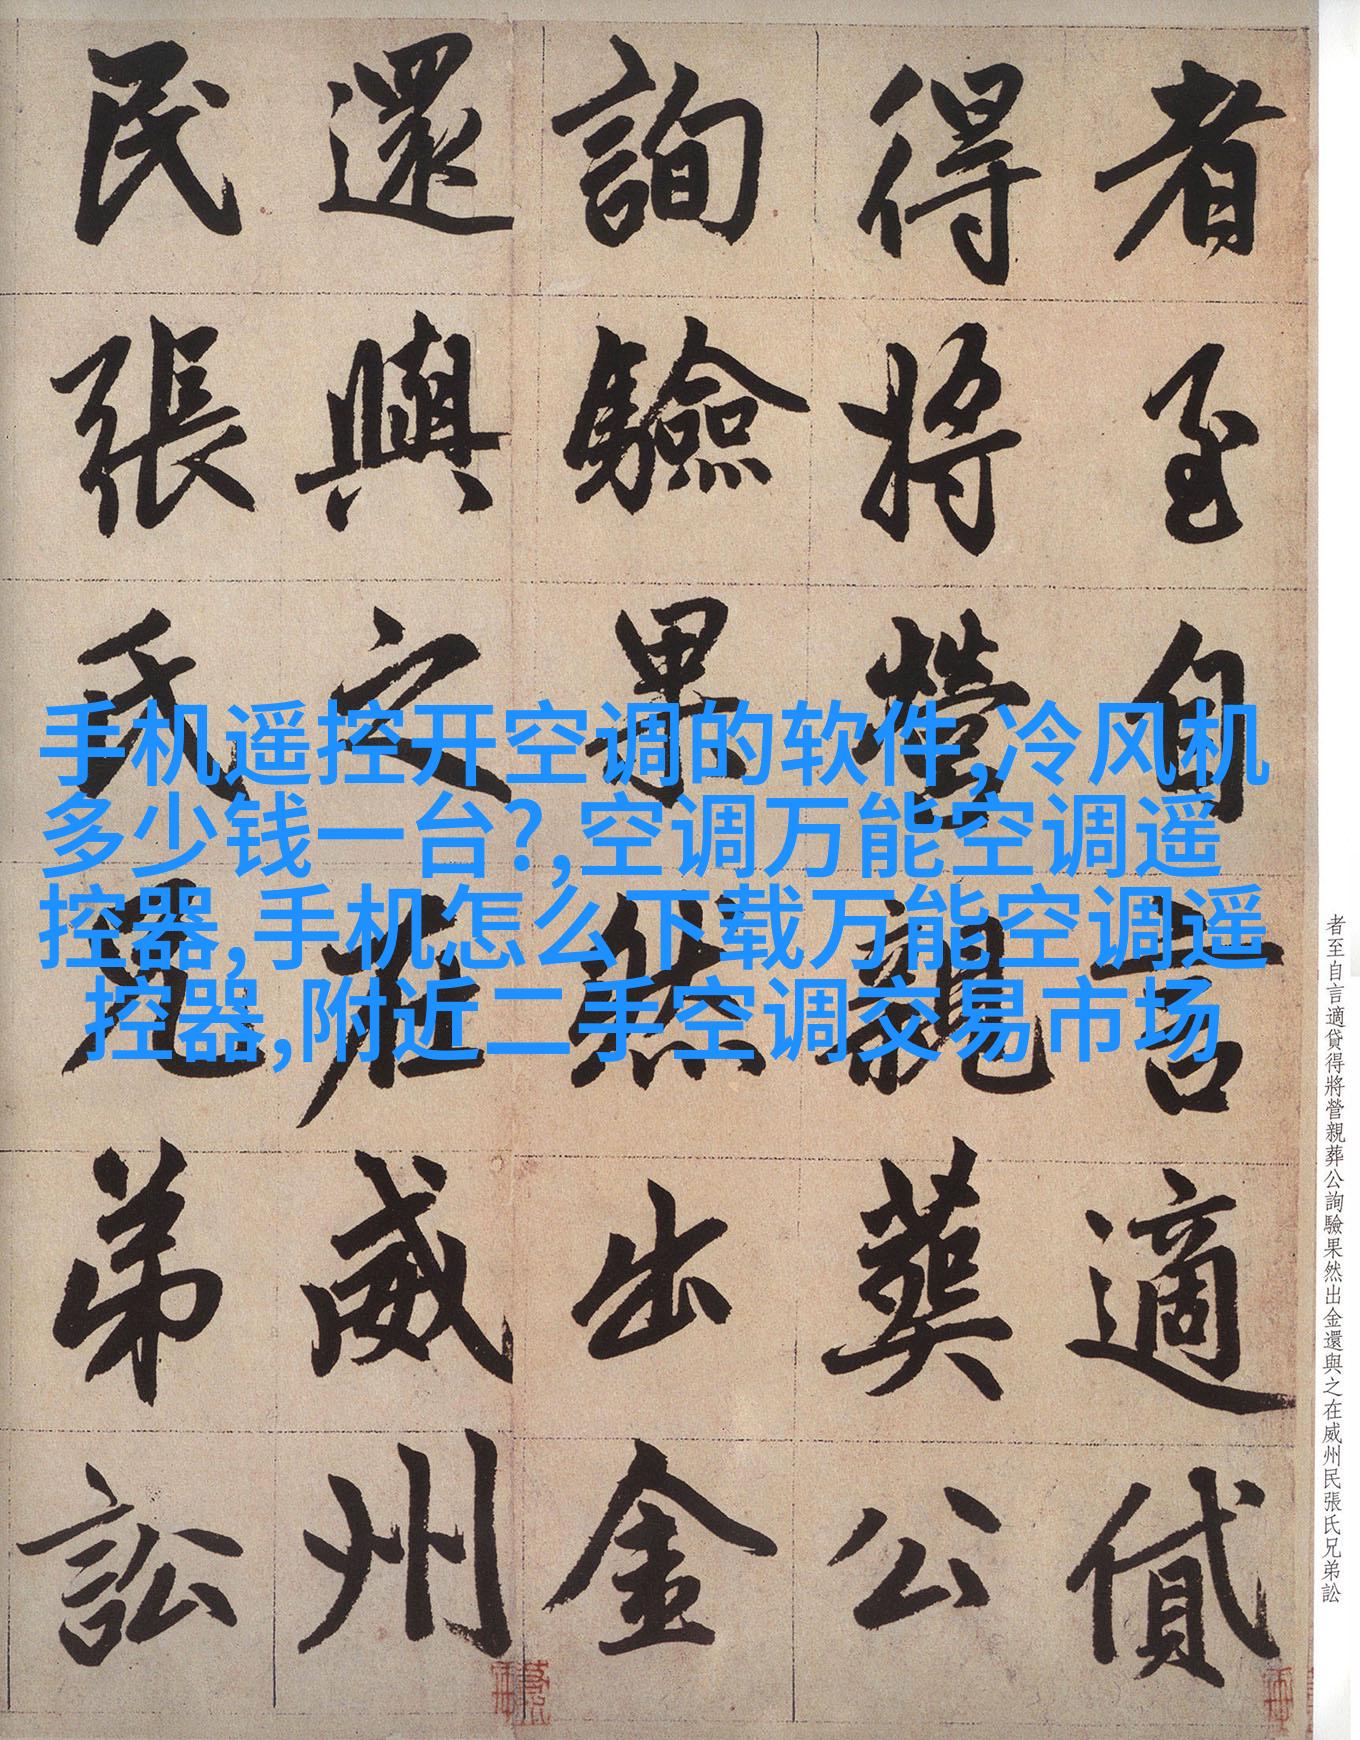 者至自言適貸
得將營親葬公
詢驗果然出金
還與之在威州
民張氏兄弟訟
手机遥控开空调的软件,冷风机
多少钱一台?,空调万能空调遥
控器,手机怎么下载万能空调遥
控器,附近二手空调交易市场
者至自言適貸得將營親葬公詢驗果然出金還與之在威州民張氏兄弟訟